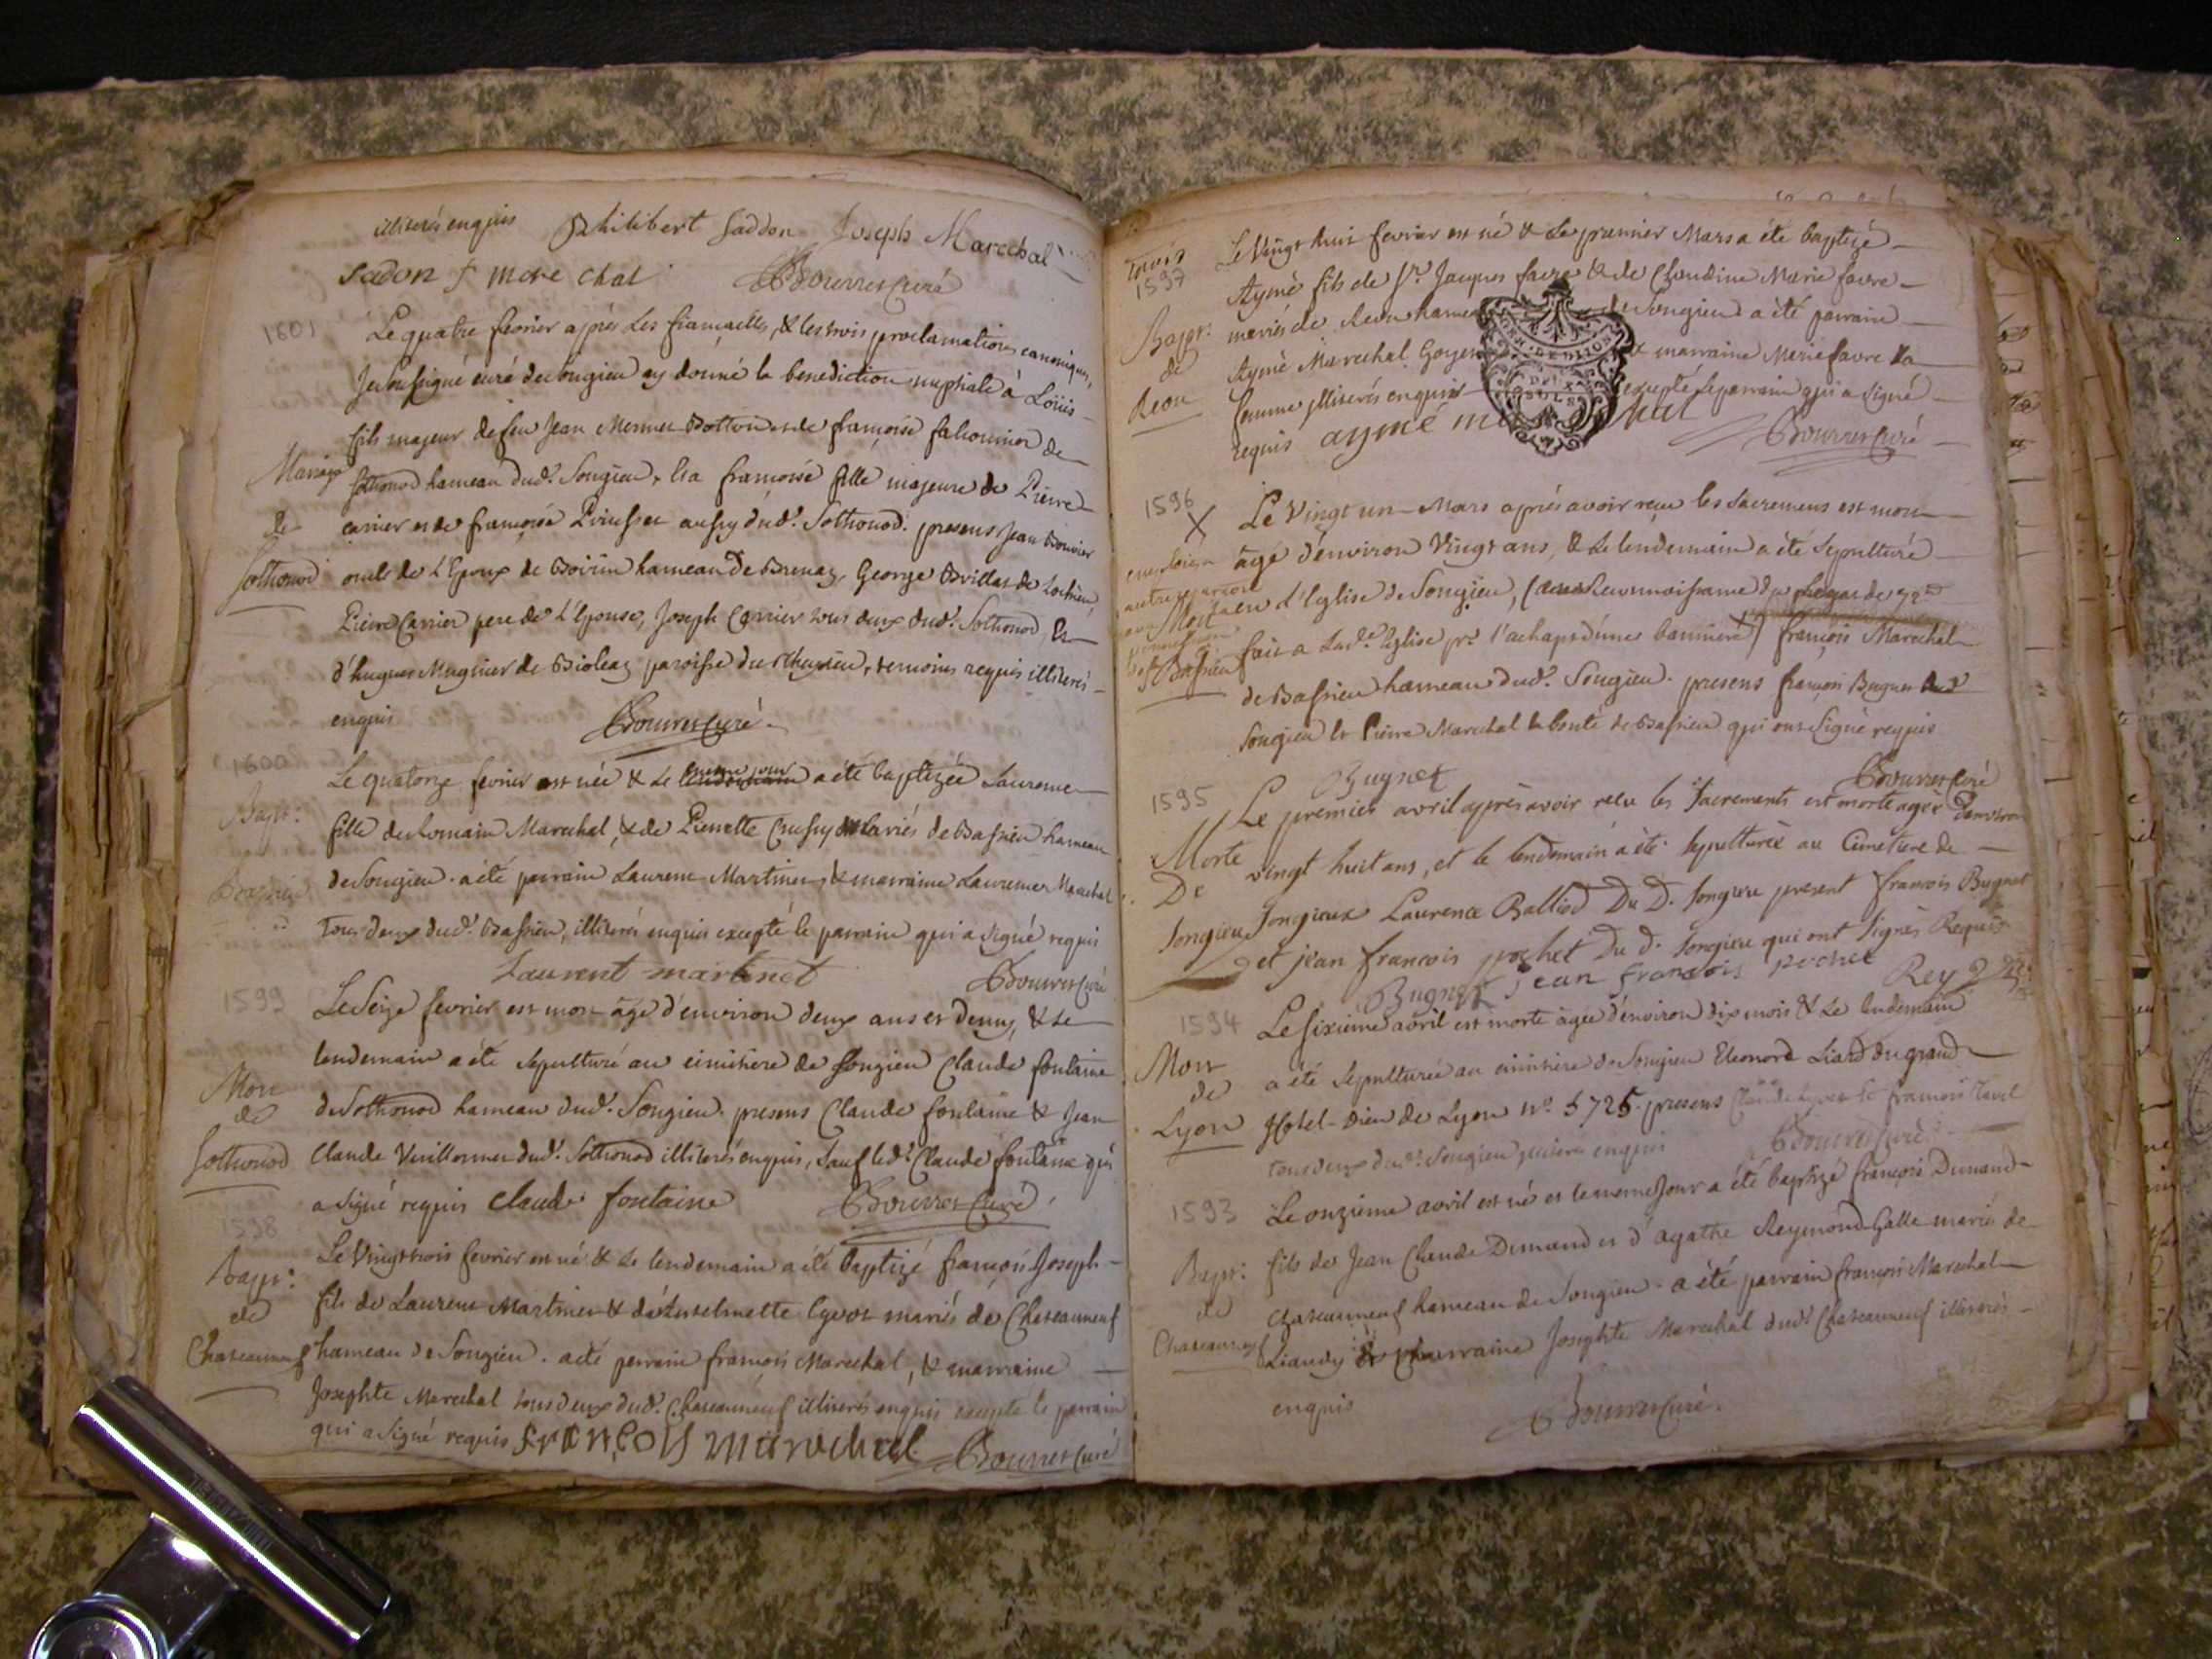 illiterés enquis Philibert Saddon Joseph Marechal
Sadon f mare chal Bourret Curé
1601
Le quatre fevrier après les fiancailles, & les trois proclamations canoniques,
Je soussigné curé de Songieu ay donné la benediction nuptiale à Loüis
fils majeur de feu Jean et de françoise de
Mariage
de
Sothonod
Sothonod hameau dud. Songieu, & a françoise fille majeure de Pierre
carrier et de françoise aussy dud. Sothonod. presens Jean Bouvier
oncle de L'Epoux de hameau de Brenaz, George Brillat de Lochieu,
Pierre Carrier pere de L'Epouse, Joseph Carrier tous deux dud. Sothonod, &
d'hugues Mugnier de Bioleaz paroisse de temoins requis illiterés
enquis Bourret Curé
1600
Le quatorze fevrier est née & le meme jour a été baptizée Laurence
Bapt:
fille de Romain Marechal, & de Pierrette mariés de Bassieu hameau
de Songieu. a été parrain Laurent Martinet, & marraine Laurence Marechal
tous deux dud. Bassieu, illiterés enquis excepté le parrain qui a signé requis
Laurent martinet Bourret Curé
1599
Le Seize fevrier est mort âgé d'environ deux ans et demy, & le
lendemain a été sepulturé au cimitiere de Songieu Claude fontaine
Mort
de
Sothonod
de Sothonod hameau dud. Songieu. presens Claude fontaine & Jean
Claude dud. Sothonod illiterés enquis, sauf led. Claude fontaine qui
a signé requis claude fontaine Bourret Curé
1598
Le Vingt trois fevrier est né & le lendemain a été baptizé françois Joseph
Bapt:
de
Chateauneuf
fils de Laurent Martinet & d'Anselmette mariés de Chateauneuf
hameau de Songieu. a été parrain françois Marechal, & marraine
Josephte Marechal tous deux dud. Chateauneuf illiterés enquis excepté le parrain
qui a signé requis françois marechal Bourret Curé
1597
Le Vingt huit fevrier est né & le premier Mars a été baptizé
Aymé fils de Sr. Jacques favre & de Claudine Marie favre
Bapt:
de
mariés de hameau de Songieu a été parrain
Aymé Marechal & marraine Marie favre sa
femme illiterés enquis excepté le parrain qui a signé
requis aymé Bourret Curé
1596
X
Le Vingt un Mars après avoir reçu les Sacremens est mort
âgé d'environ Vingt ans, & le lendemain a été sepulturé
Mort
Bassieu
en l'Eglise de Songieu,
fait a Lad. Eglise pr. l'achapt d'une banniere) françois Marechal
de Bassieu hameau dud. Songieu. presens françois Bugnet
Songieu & Pierre Marechal de Bassieu qui ont signé requis
Bugnet Bourret Curé
1595
Le premier avril après avoir reçu les Sacrements est morte agée d'environ
Morte
De
Songieu
vingt huit ans, et le lendemain a été sepulturée au Cimetiere de
Songieux Laurence Balliod Du D. Songieu present francois Bugnet
et jean francois pochet Du D. Songieu qui ont signés Requis
Bugnet jean francois pochet Rey
1594
Le sixieme avril est morte agée d'environ dix mois & le lendemain
Mort
de
Lyon
a été sepulturée au cimitiere de Songieu Eleonord Liard du grand
Hotel-Dieu de Lyon No. 5725. presens & francois
tous deux dud. Songieu illiterés enquis Bourret Curé
1593
Le onzieme avril est né et le meme Jour a été baptizé françois Dumand
Bapt:
de
Chateauneuf
fils de Jean Claude Dumand et d'agathe Reymond Galle mariés de
Chateauneuf hameau de Songieu. a été parrain françois Marechal
Liaudy & marraine Josephte Marechal dud. Chateauneuf illiterés
enquis Bourret Curé.